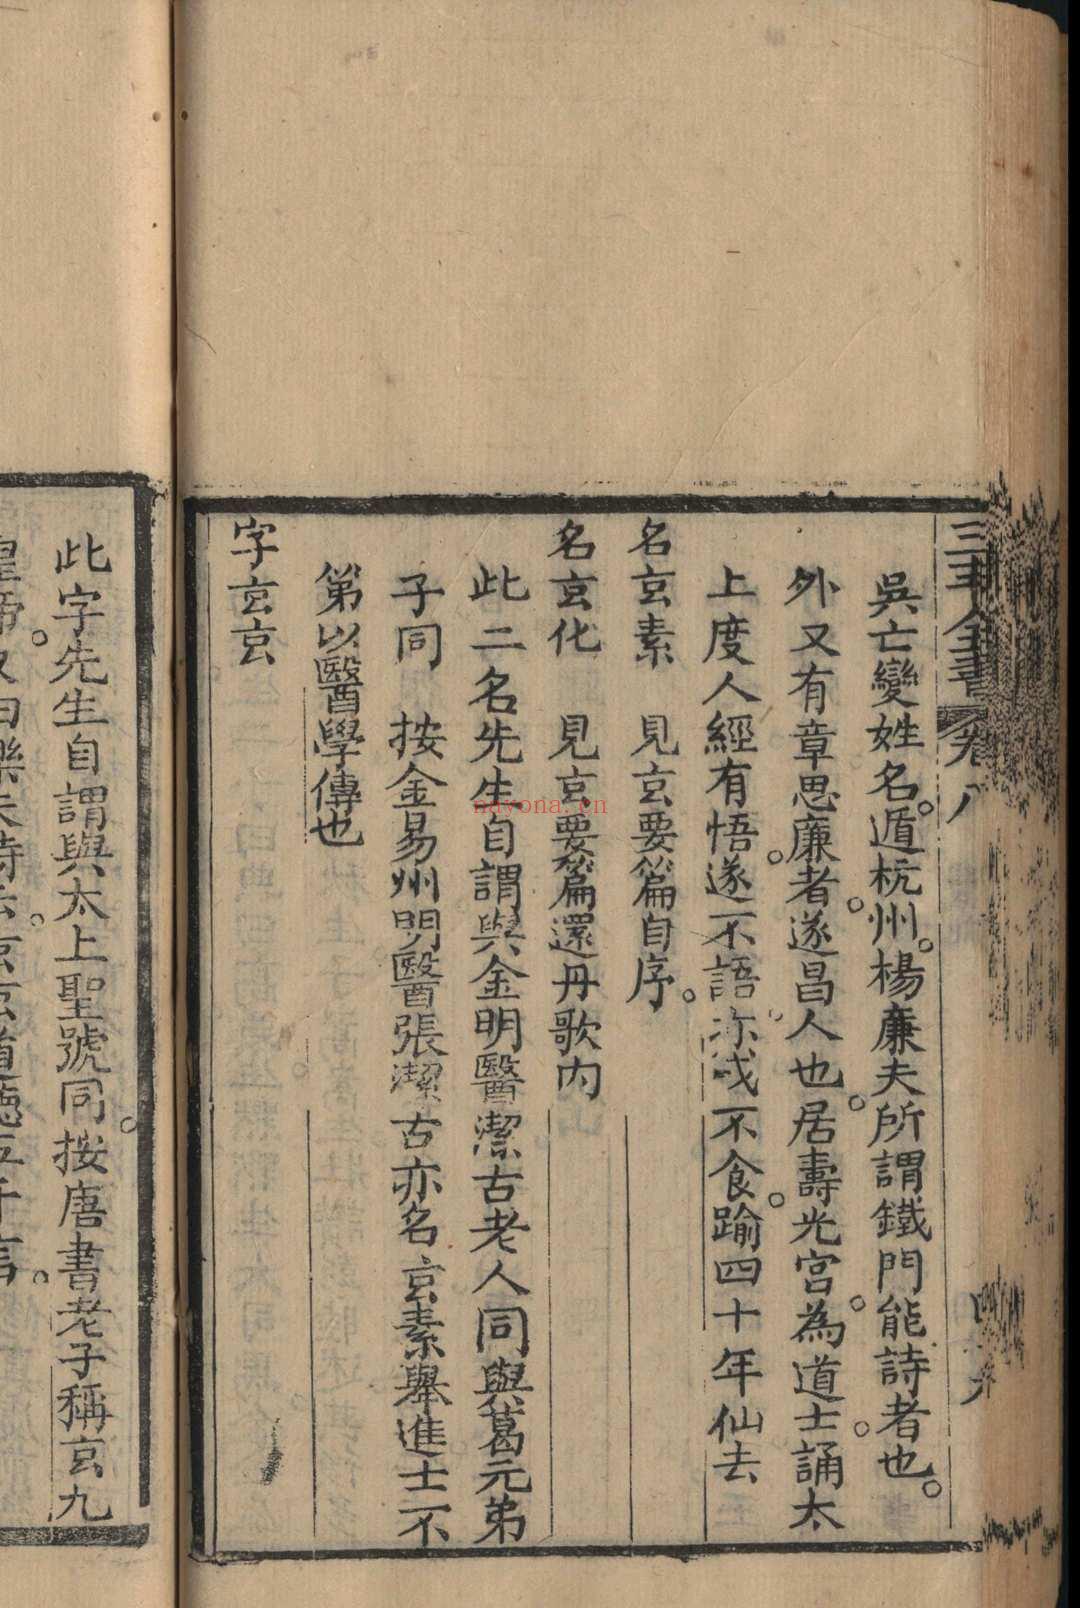 三丰全書 卷八
吳亡變姓名遁杭州楊廉夫所謂鐵門能詩者也
外又有章思廉者遂昌人也居壽光宮為道士誦太
上度人經有悟遂不語亦或不食踰四十年仙去
名玄素 見玄要篇自序
名玄化 見玄要篇還丹歌內
此二名先生自謂與金明醫潔古老人同與葛元弟
子同 按金易州明醫張潔古亦名玄素舉進士不
第以醫學傳也
字玄玄
此字先生自謂與太上聖號同按唐書老子稱玄九
皇帝又曰樂天詩云玄玄道德五千言
navona.cn